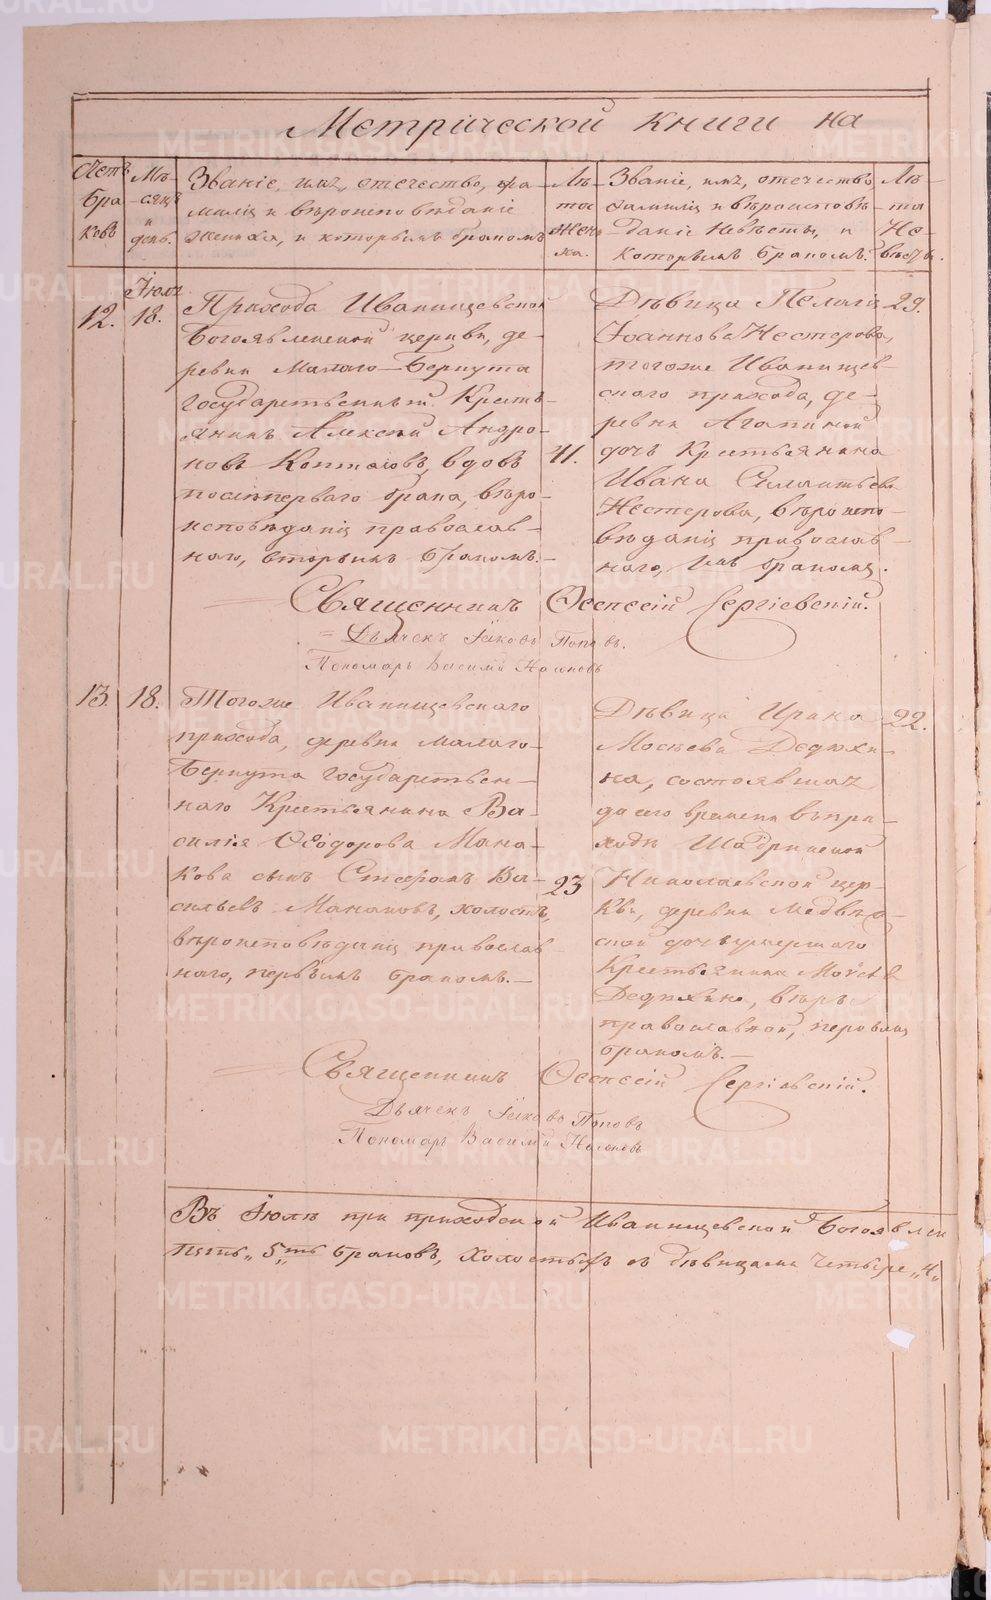 Метрической книги на
Счетъ Бра ковъ
Мѣ- сяцъ и день.
Званіе, имя, отечество, фа-
милія и вѣроисповѣданіе
жениха, и которымъ бракомъ
Лѣ- та Жени ха.
Званіе, имя, отечество,
фамилія и вѣроисповѣ-
даніе невѣсты, и
которымъ бракомъ.
Лѣ- та Не- вѣсты.
Іюль
12. 18.
Прихода Иванищевской
Богоявленской церкви, де-
ревни Малаго-Беркута
государственный Кресть-
янинъ Алексѣй Андро-
новъ Коптяговъ, вдовъ
послѣ перваго брака, вѣро-
исповѣданія православ-
наго, вторымъ бракомъ.-
41.
Дѣвица Пелагія
Іоаннова Нестерова,
тогоже Иванищев-
скаго прихода, де-
ревни Агапиной
дочь Крестьянина
Ивана
Нестерова, вѣроиспо-
вѣданія православ-
наго, 1мъ бракомъ.
29.
Священникъ Сергіевскій.
Дьячекъ Іаковъ Поповъ.
Пономарь Василій
13. 18.
Тогоже Иванищевскаго
прихода, деревни Малаго-
Беркута государствен-
наго Крестьянина Ва-
силія Ѳеодорова Мана-
кова сынъ Стефанъ Ва-
сильевъ Манаковъ, холостъ,
вѣроисповѣданія православ-
наго, первымъ бракомъ.-
23
Дѣвица Ирина
Мосѣева Дедюхи-
на, состоявшая
до сего времени въ при-
ходѣ Шадринской
Николаевской цер-
кви, деревни
ской дочь умершаго
Крестьянина Моѵсея
Дедюхина, вѣры
православной, первымъ
бракомъ.-
22.
Священникъ Сергіевскій.
Дьячекъ Іаковъ Поповъ
Пономарь Василій
Въ Іюлѣ при приходской Иванищевской Богоявлен
пять „5ть браковъ, холостыхъ съ дѣвицами четыре „4„
METRIKI.GASO-URAL.RU